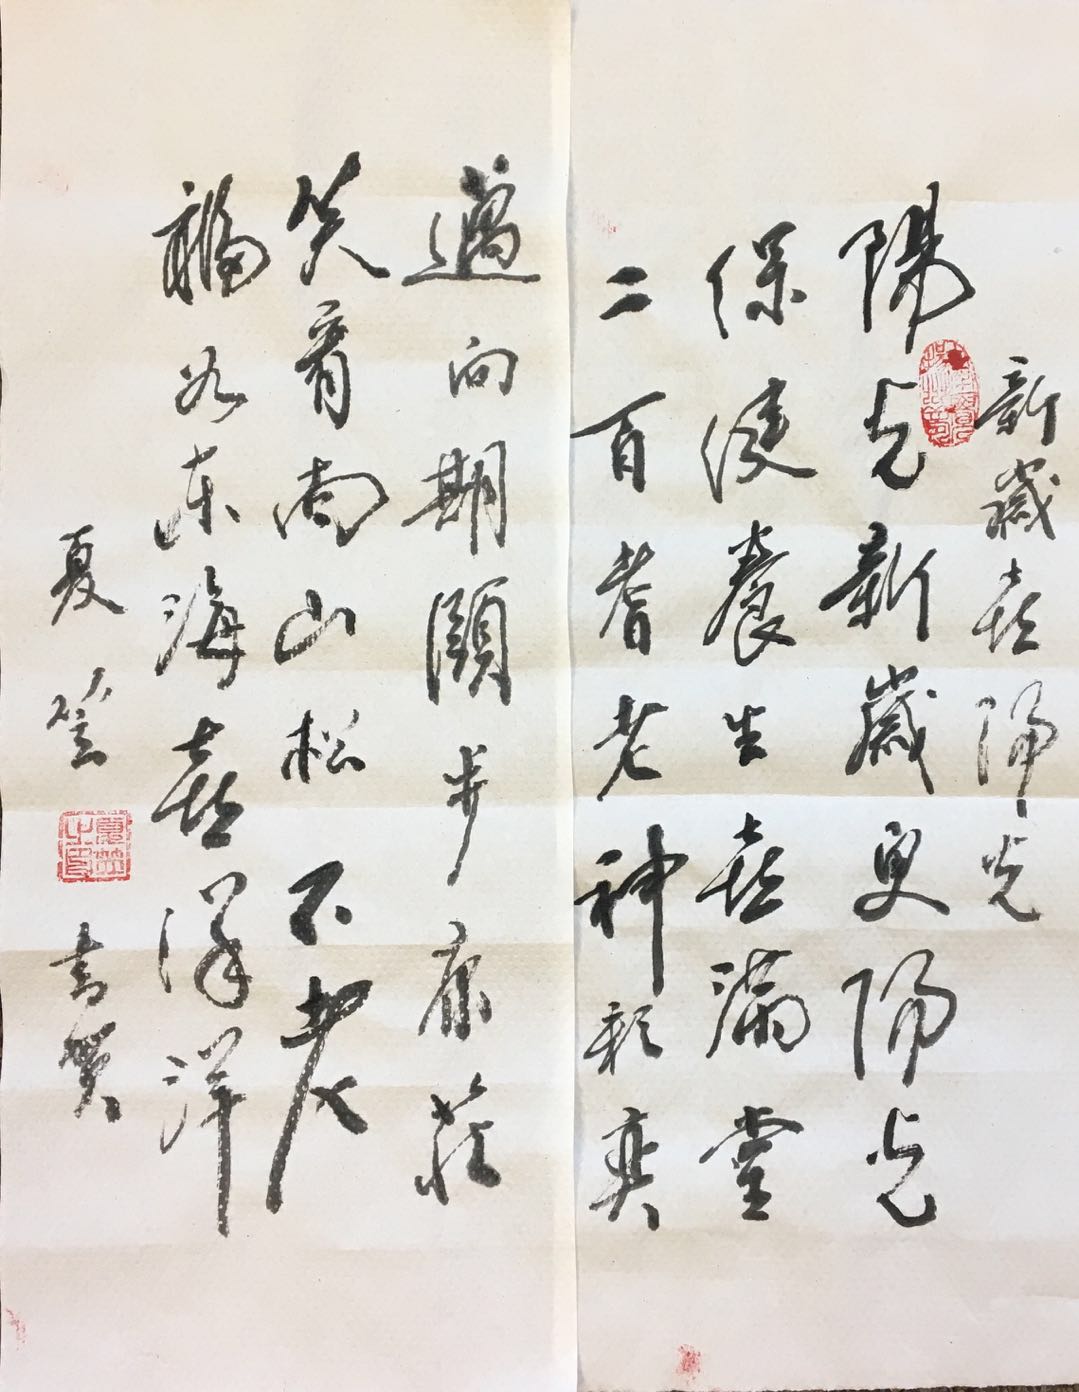 新歲喜陽光
陽光新歲更陽光
保健養生喜滿堂
二百耆老神彩奕
邁向期頤步康莊
笑看南山松不老
福如东海喜洋洋
夏 書賀